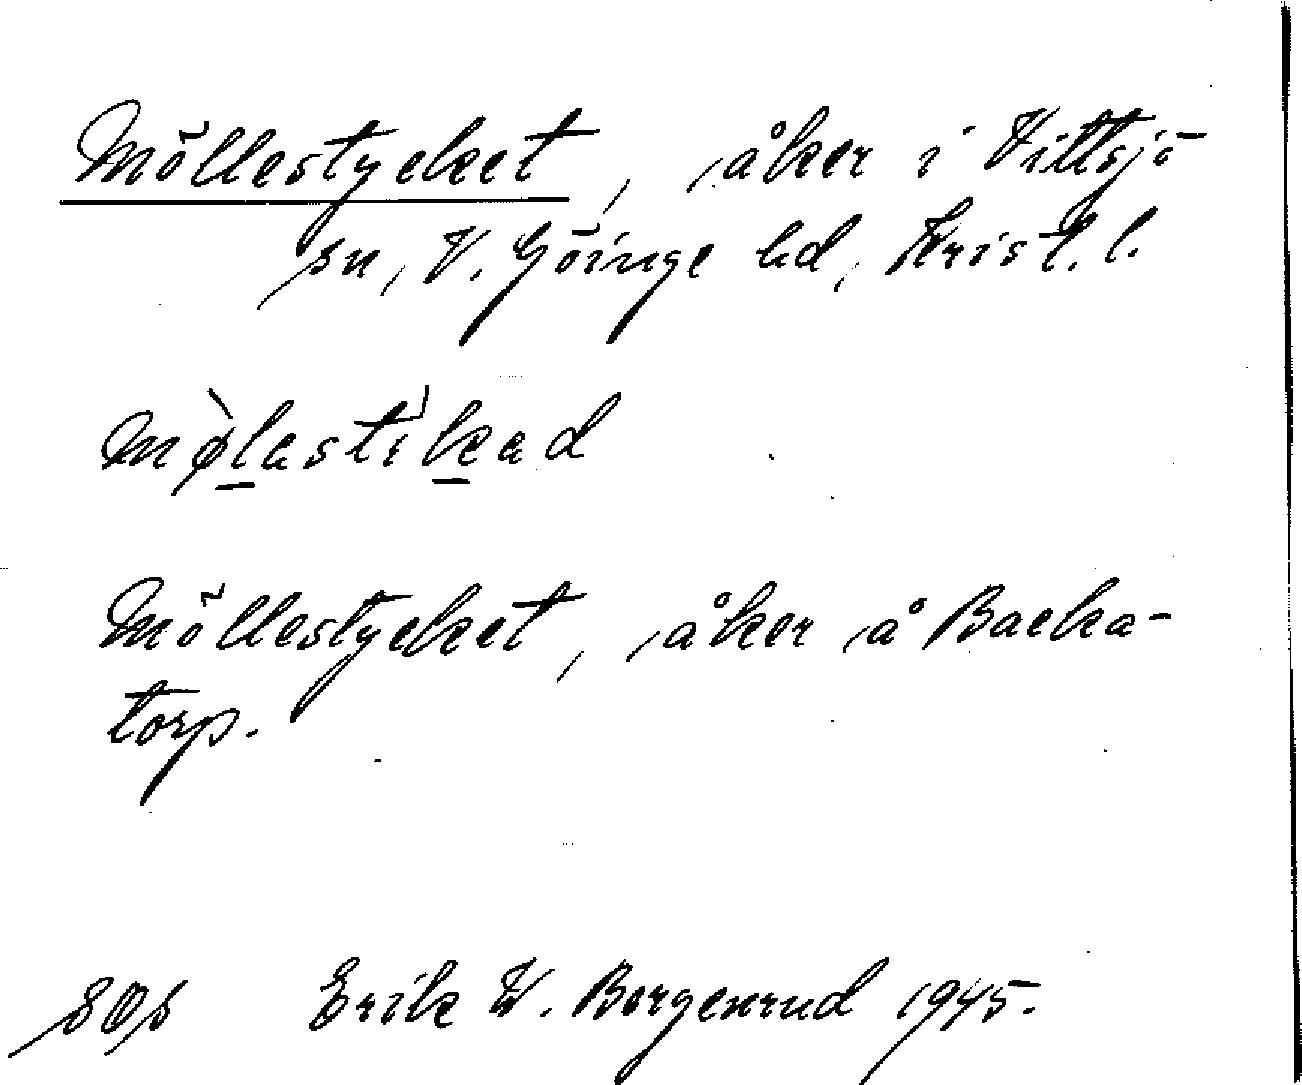 Möllestycket, åker i Vittsjö
sn, V. Göinge hd, Krist. l.
mø̀lastikad
Möllestycket, åker å Backa-
torp.
Erik W. Bergenrud 1945.